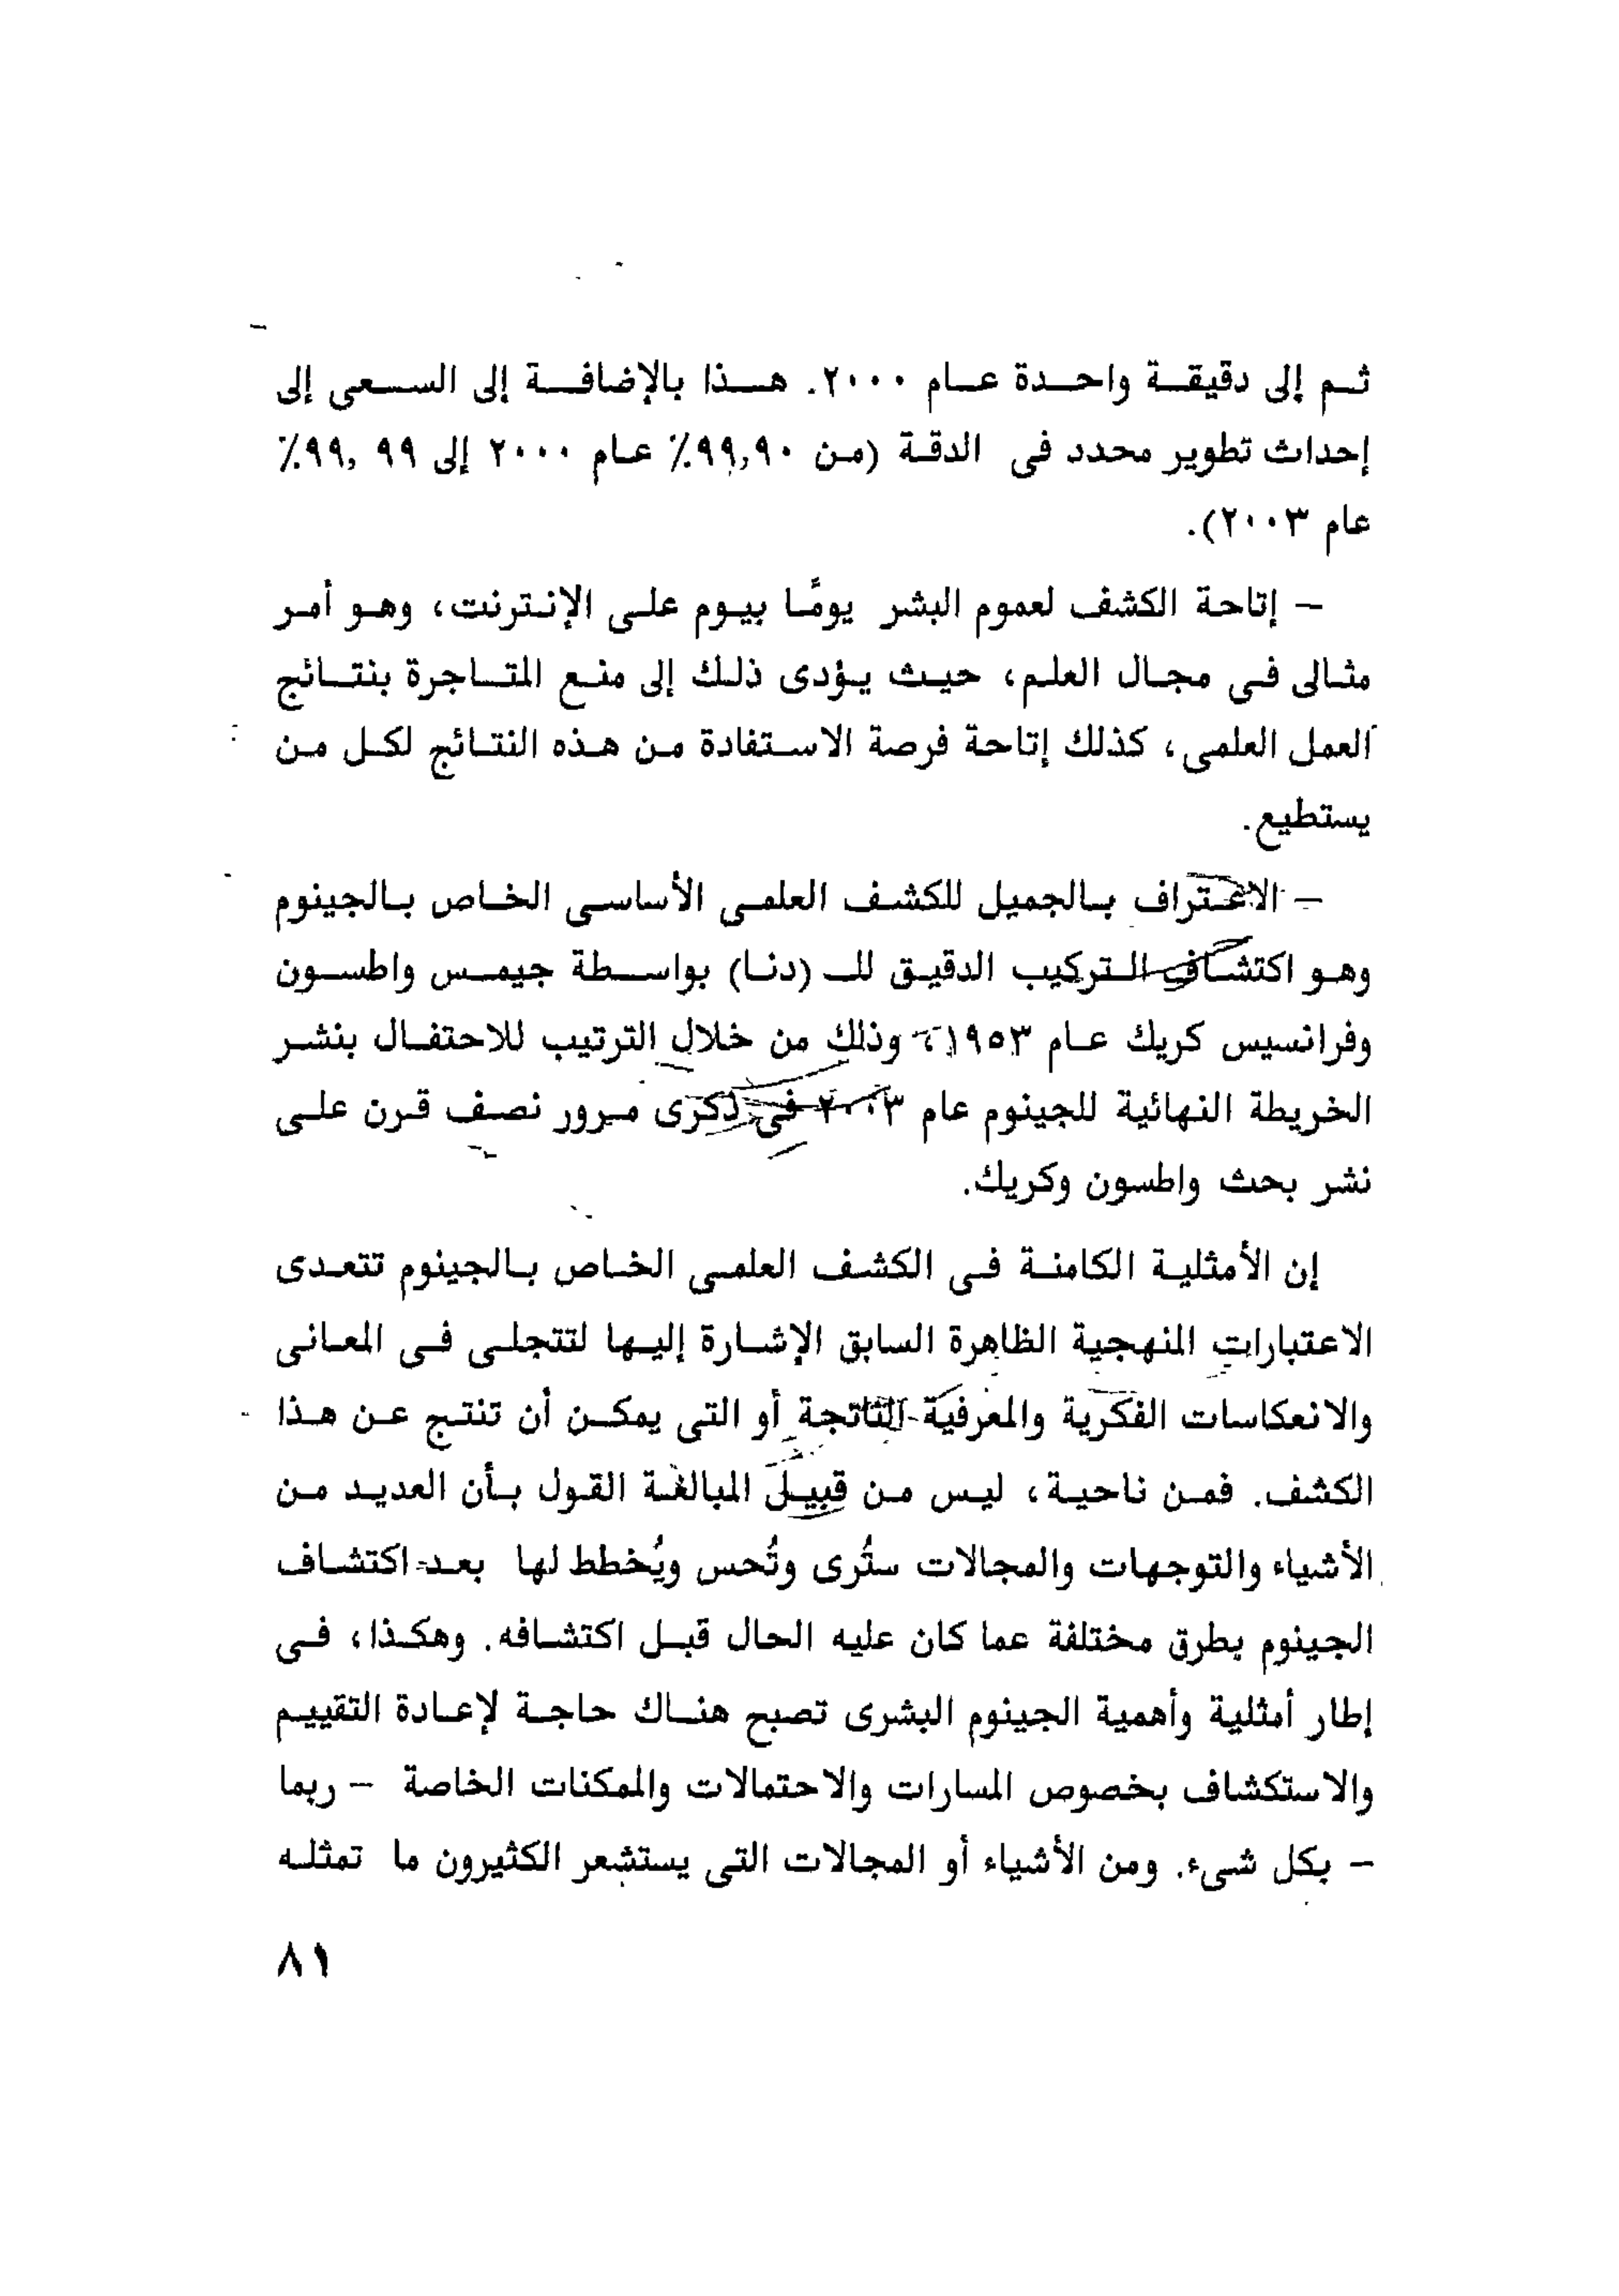 ثم إلى دقيقة واحدة عام ٢٠٠٠. هذا بالإضافة إلى السعى إلى
إحداث تطوير محدد فى الدقة (من ٩٩,٩٠٪ عام ٢٠٠٠ إلى ٩٩ ,٩٩٪
عام ٢٠٠٣).
– إتاحة الكشف لعموم البشر يومًا بيوم على الإنترنت، وهو أمر
مثالى فى مجال العلم، حيث يؤدى ذلك إلى منع المتاجرة بنتائج
العمل العلمى، كذلك إتاحة فرصة الاستفادة من هذه النتائج لكل من
يستطيع.
– الاعتراف بالجميل للكشف العلمى الأساسى الخاص بالجينوم
وهو اكتشاف التركيب الدقيق للـ (دنا) بواسطة جيمس واطسون
وفرانسيس كريك عام ١٩٥٣، وذلك من خلال الترتيب للاحتفال بنشر
الخريطة النهائية للجينوم عام ٢٠٠٣ فى ذكرى مرور نصف قرن على
نشر بحث واطسون وكريك.
إن الأمثلية الكامنة فى الكشف العلمى الخاص بالجينوم تتعدى
الاعتبارات المنهجية الظاهرة السابق الإشارة إليها لتتجلى فى المعانى
والانعكاسات الفكرية والمعرفية الناتجة أو التى يمكن أن تنتج عن هذا
الكشف. فمن ناحية، ليس من قبيل المبالغة القول بأن العديد من
الأشياء والتوجهات والمجالات ستُرى وتُحس ويُخطط لها بعد اكتشاف
الجينوم بطرق مختلفة عما كان عليه الحال قبل اكتشافه. وهكذا، فى
إطار أمثلية وأهمية الجينوم البشرى تصبح هناك حاجة لإعادة التقييم
والاستكشاف بخصوص المسارات والاحتمالات والممكنات الخاصة – ربما
– بكل شىء. ومن الأشياء أو المجالات التى يستشعر الكثيرون ما تمثله
٨١